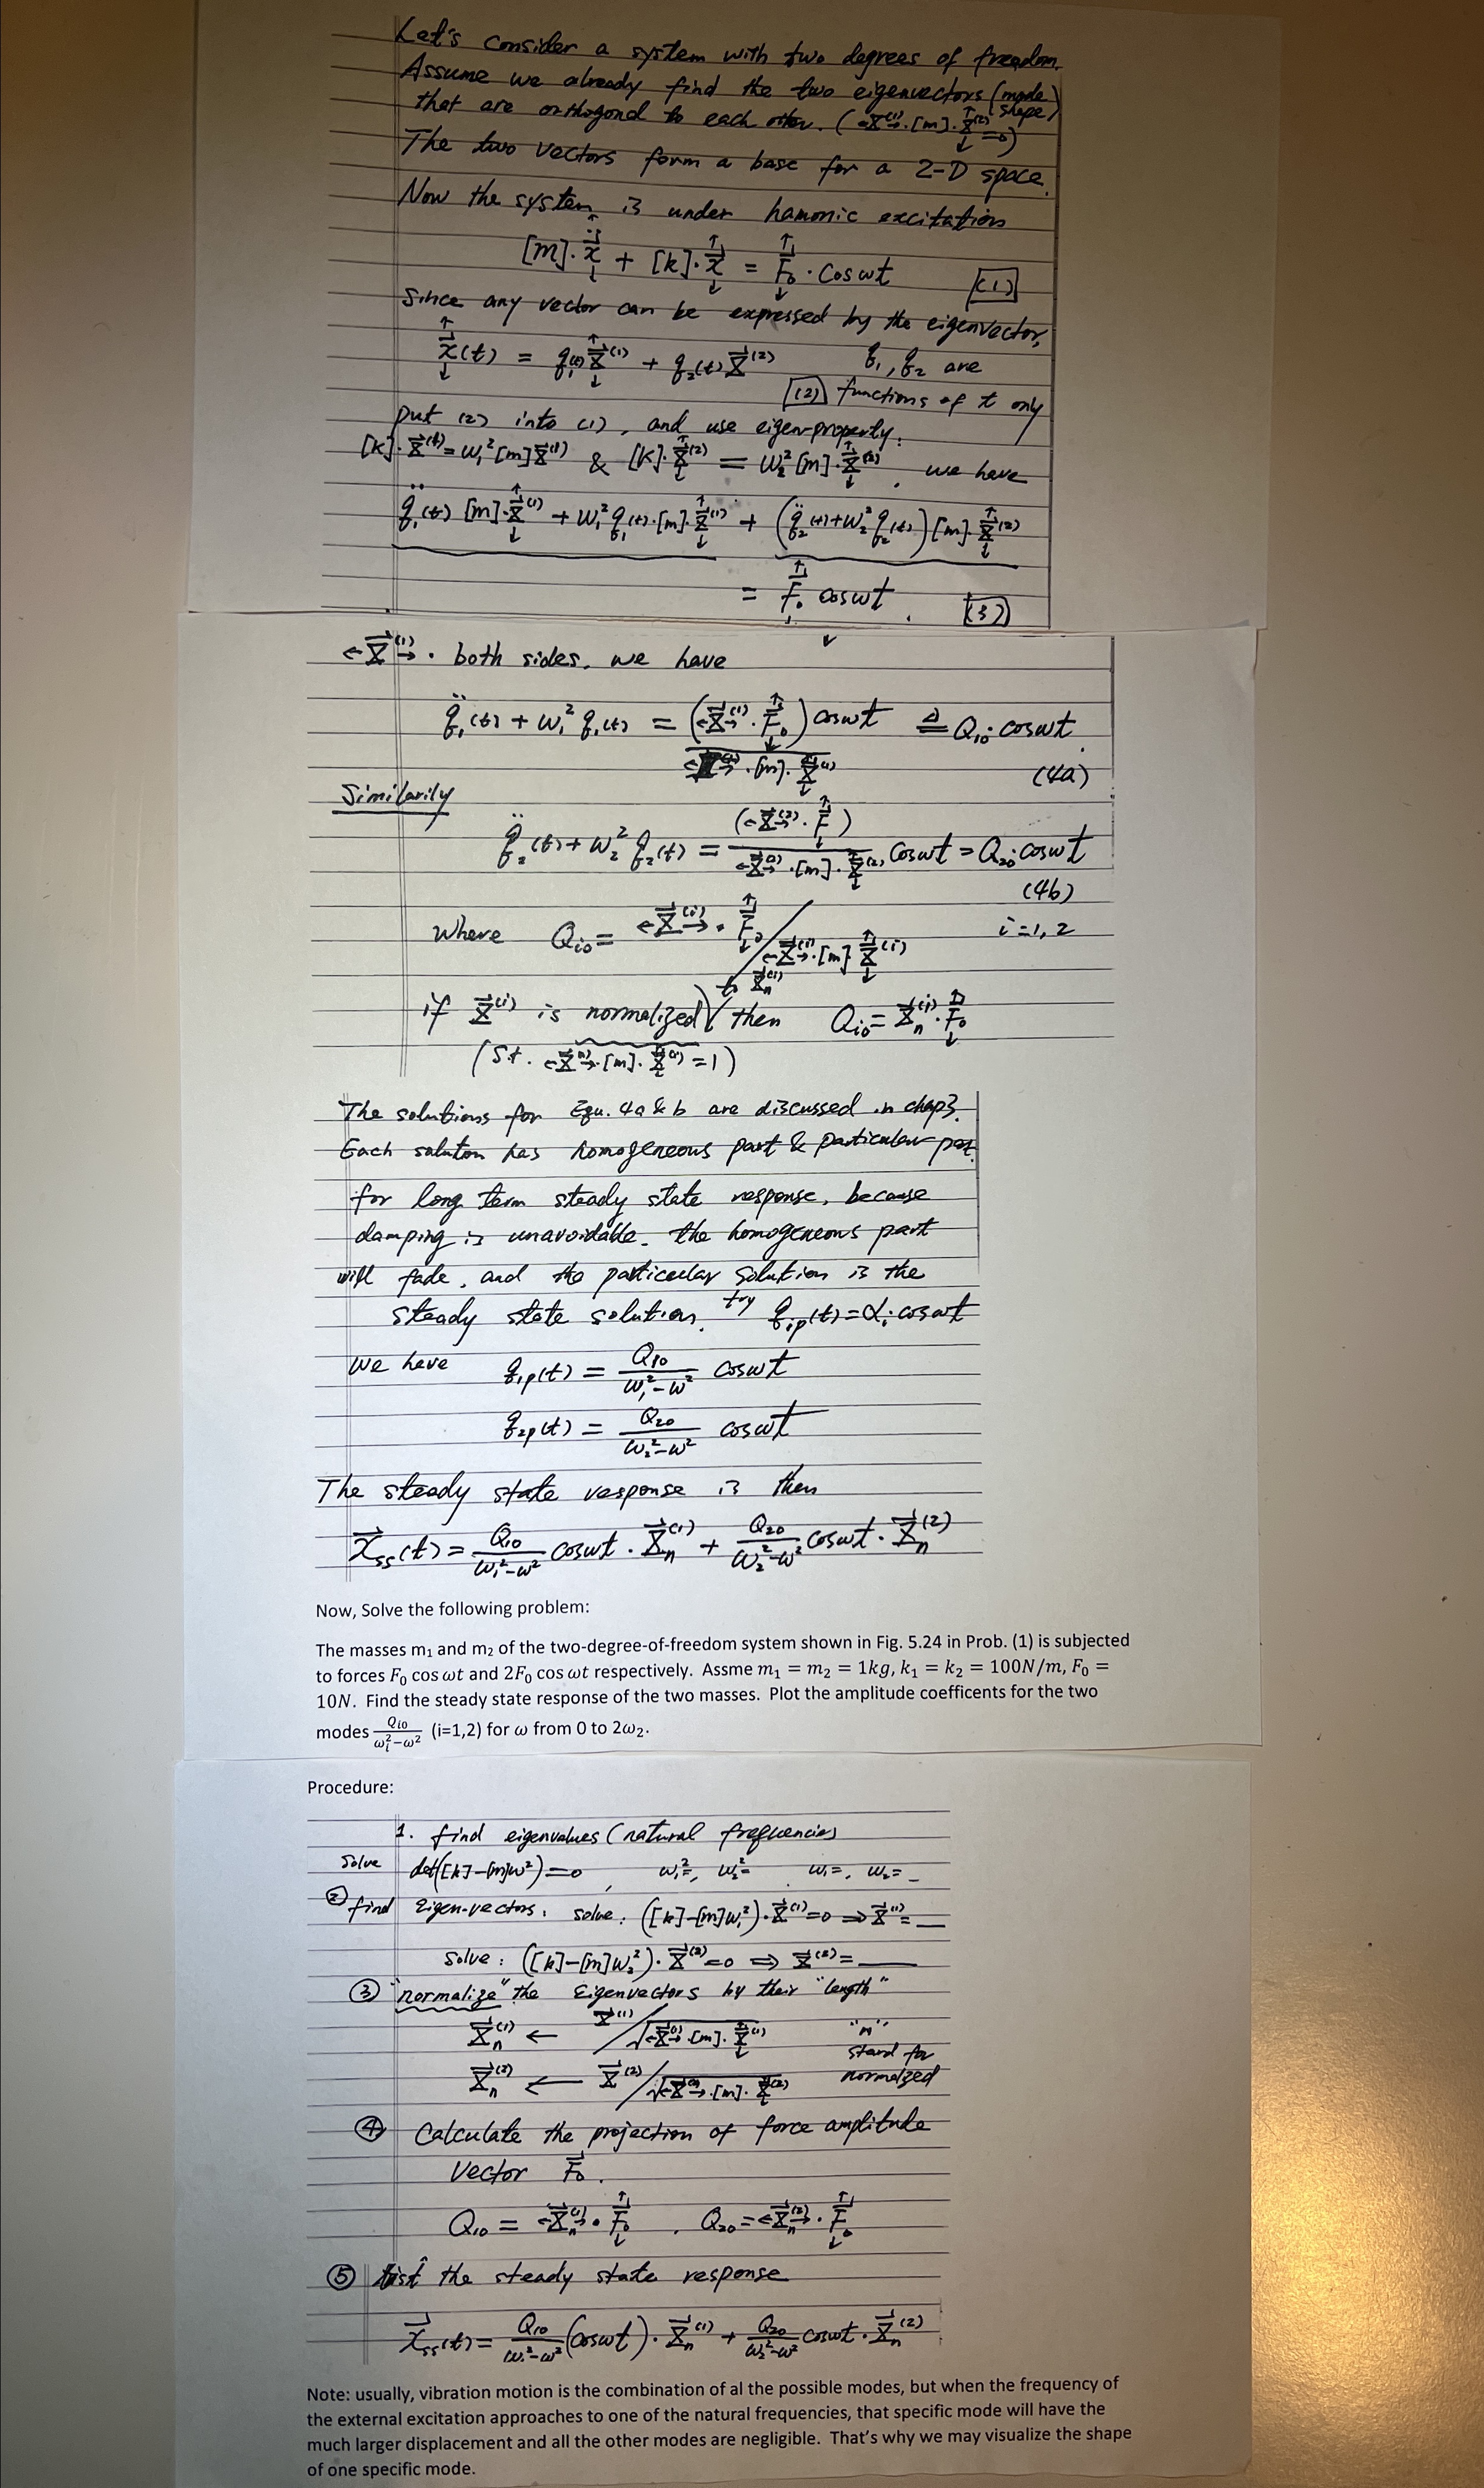 Let's consider a system with two degrees of freedom.
Assume we already find the two eigenvectors (mode shape)
that are orthogond to each other. (←X⃗⁽¹⁾→·[m]·X⃗⁽²⁾=0)
The two vectors form a base for a 2-D space.
Now the system is under hamonic excitation
[m]·ẍ⃗ + [k]·x⃗ = F⃗₀·cosωt (1)
Since any vector can be expressed by the eigenvector,
x⃗(t) = q₁(t)X⃗⁽¹⁾ + q₂(t)X⃗⁽²⁾ q₁, q₂ are
(2) functions of t only
put (2) into (1), and use eigen-property:
[k]·X⃗⁽¹⁾=ω₁²[m]X⃗⁽¹⁾ & [k]·X⃗⁽²⁾ = ω₂²[m]·X⃗⁽²⁾, we have
q̈₁(t)[m]·X⃗⁽¹⁾ + ω₁²q₁(t)·[m]·X⃗⁽¹⁾ + (q̈₂(t)+ω₂²q₂(t))[m]·X⃗⁽²⁾
= F⃗₀ cosωt. (3)
←X⃗⁽¹⁾→· both sides, we have
q̈₁(t) + ω₁²q₁(t) = (←X⃗⁽¹⁾→·F⃗₀)cosωt ≜ Q₁₀·cosωt
←X⃗⁽¹⁾→·[m]·X⃗⁽¹⁾ (4a)
Similarily
(←X⃗⁽²⁾→·F⃗)
q̈₂(t)+ω₂²q₂(t) = ←X⃗⁽²⁾→·[m]·X⃗⁽²⁾ cosωt = Q₂₀·cosωt
(4b)
where Qᵢ₀= ←X⃗⁽ⁱ⁾→·F⃗₀ / ←X⃗⁽ⁱ⁾→·[m]X⃗⁽ⁱ⁾ i=1,2
to X⃗ₙ⁽ⁱ⁾
if X⃗⁽ⁱ⁾ is normalized then Qᵢ₀= X⃗ₙ⁽ⁱ⁾·F⃗₀
(St. ←X⃗⁽ⁱ⁾→·[m]·X⃗⁽ⁱ⁾=1)
The solutions for Equ. 4a & b are discussed in chap3.
Each soluton has homogeneous part & particular part.
for long term steady state response, because
damping is unavoidable, the homogeneous part
will fade, and the particular solution is the
steady state solution. try qᵢₚ(t)=αᵢ·cosωt
we have q₁ₚ(t) = Q₁₀/(ω₁²-ω²) cosωt
q₂ₚ(t) = Q₂₀/(ω₂²-ω²) cosωt
The steady state response is then
x⃗ₛₛ(t) = Q₁₀/(ω₁²-ω²) cosωt·X⃗ₙ⁽¹⁾ + Q₂₀/(ω₂²-ω²) cosωt·X⃗ₙ⁽²⁾
Now, Solve the following problem:
The masses m₁ and m₂ of the two-degree-of-freedom system shown in Fig. 5.24 in Prob. (1) is subjected
to forces F₀ cos ωt and 2F₀ cos ωt respectively. Assme m₁ = m₂ = 1kg, k₁ = k₂ = 100N/m, F₀ =
10N. Find the steady state response of the two masses. Plot the amplitude coefficents for the two
modes Qᵢ₀/(ωᵢ²−ω²) (i=1,2) for ω from 0 to 2ω₂.
Procedure:
1. find eigenvalues (natural frequencies)
Solve det([k]-[m]ω²)=0, ω₁²=, ω₂²= , ω₁=, ω₂= _
② find Eigen-vectors: solve: ([k]-[m]ω₁²)·X⃗⁽¹⁾=0 ⇒ X⃗⁽¹⁾= __
Solve: ([k]-[m]ω₂²)·X⃗⁽²⁾=0 ⇒ X⃗⁽²⁾= ___
③ "normalize" the Eigenvectors by their "length"
X⃗ₙ⁽¹⁾ ← X⃗⁽¹⁾/√(←X⃗⁽¹⁾→·[m]·X⃗⁽¹⁾) "n"
stand for
X⃗ₙ⁽²⁾ ← X⃗⁽²⁾/√(←X⃗⁽²⁾→·[m]·X⃗⁽²⁾) normalzed
④ Calculate the projection of force amplitude
Vector F⃗₀.
Q₁₀ = ←X⃗ₙ⁽¹⁾→·F⃗₀ , Q₂₀=←X⃗ₙ⁽²⁾→·F⃗₀
⑤ list the steady state response
x⃗ₛₛ(t)= Q₁₀/(ω₁²-ω²)(cosωt)·X⃗ₙ⁽¹⁾ + Q₂₀/(ω₂²-ω²)cosωt·X⃗ₙ⁽²⁾
Note: usually, vibration motion is the combination of al the possible modes, but when the frequency of
the external excitation approaches to one of the natural frequencies, that specific mode will have the
much larger displacement and all the other modes are negligible. That's why we may visualize the shape
of one specific mode.